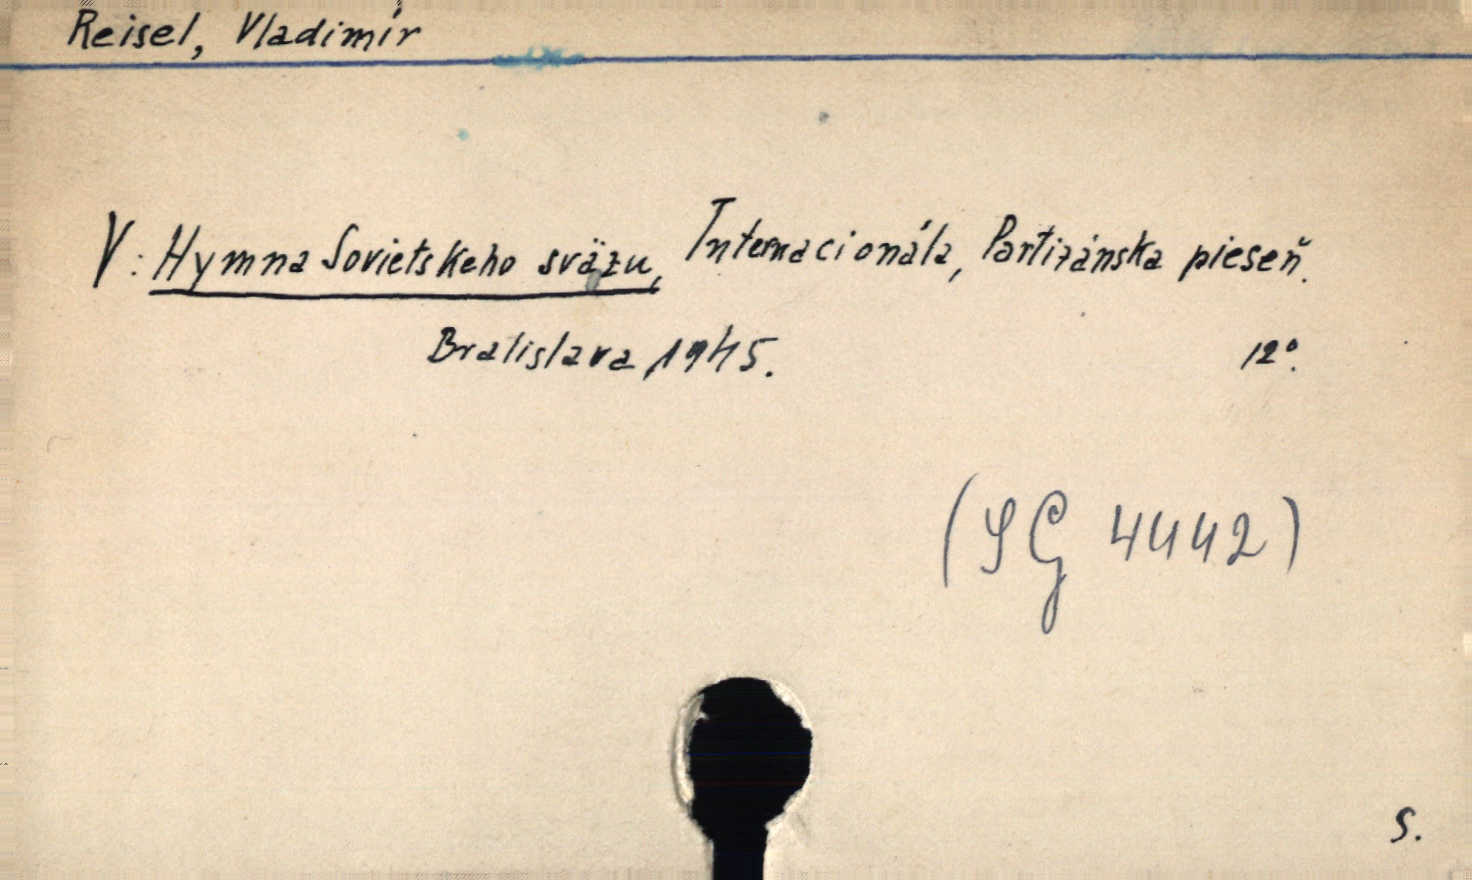 Reisel, Vladimír
V: Hymna Sovietskeho sväzu, Internacionála, Partizánska pieseň.
Bratislava, 1945. 12°.
(SG 4442)
S.